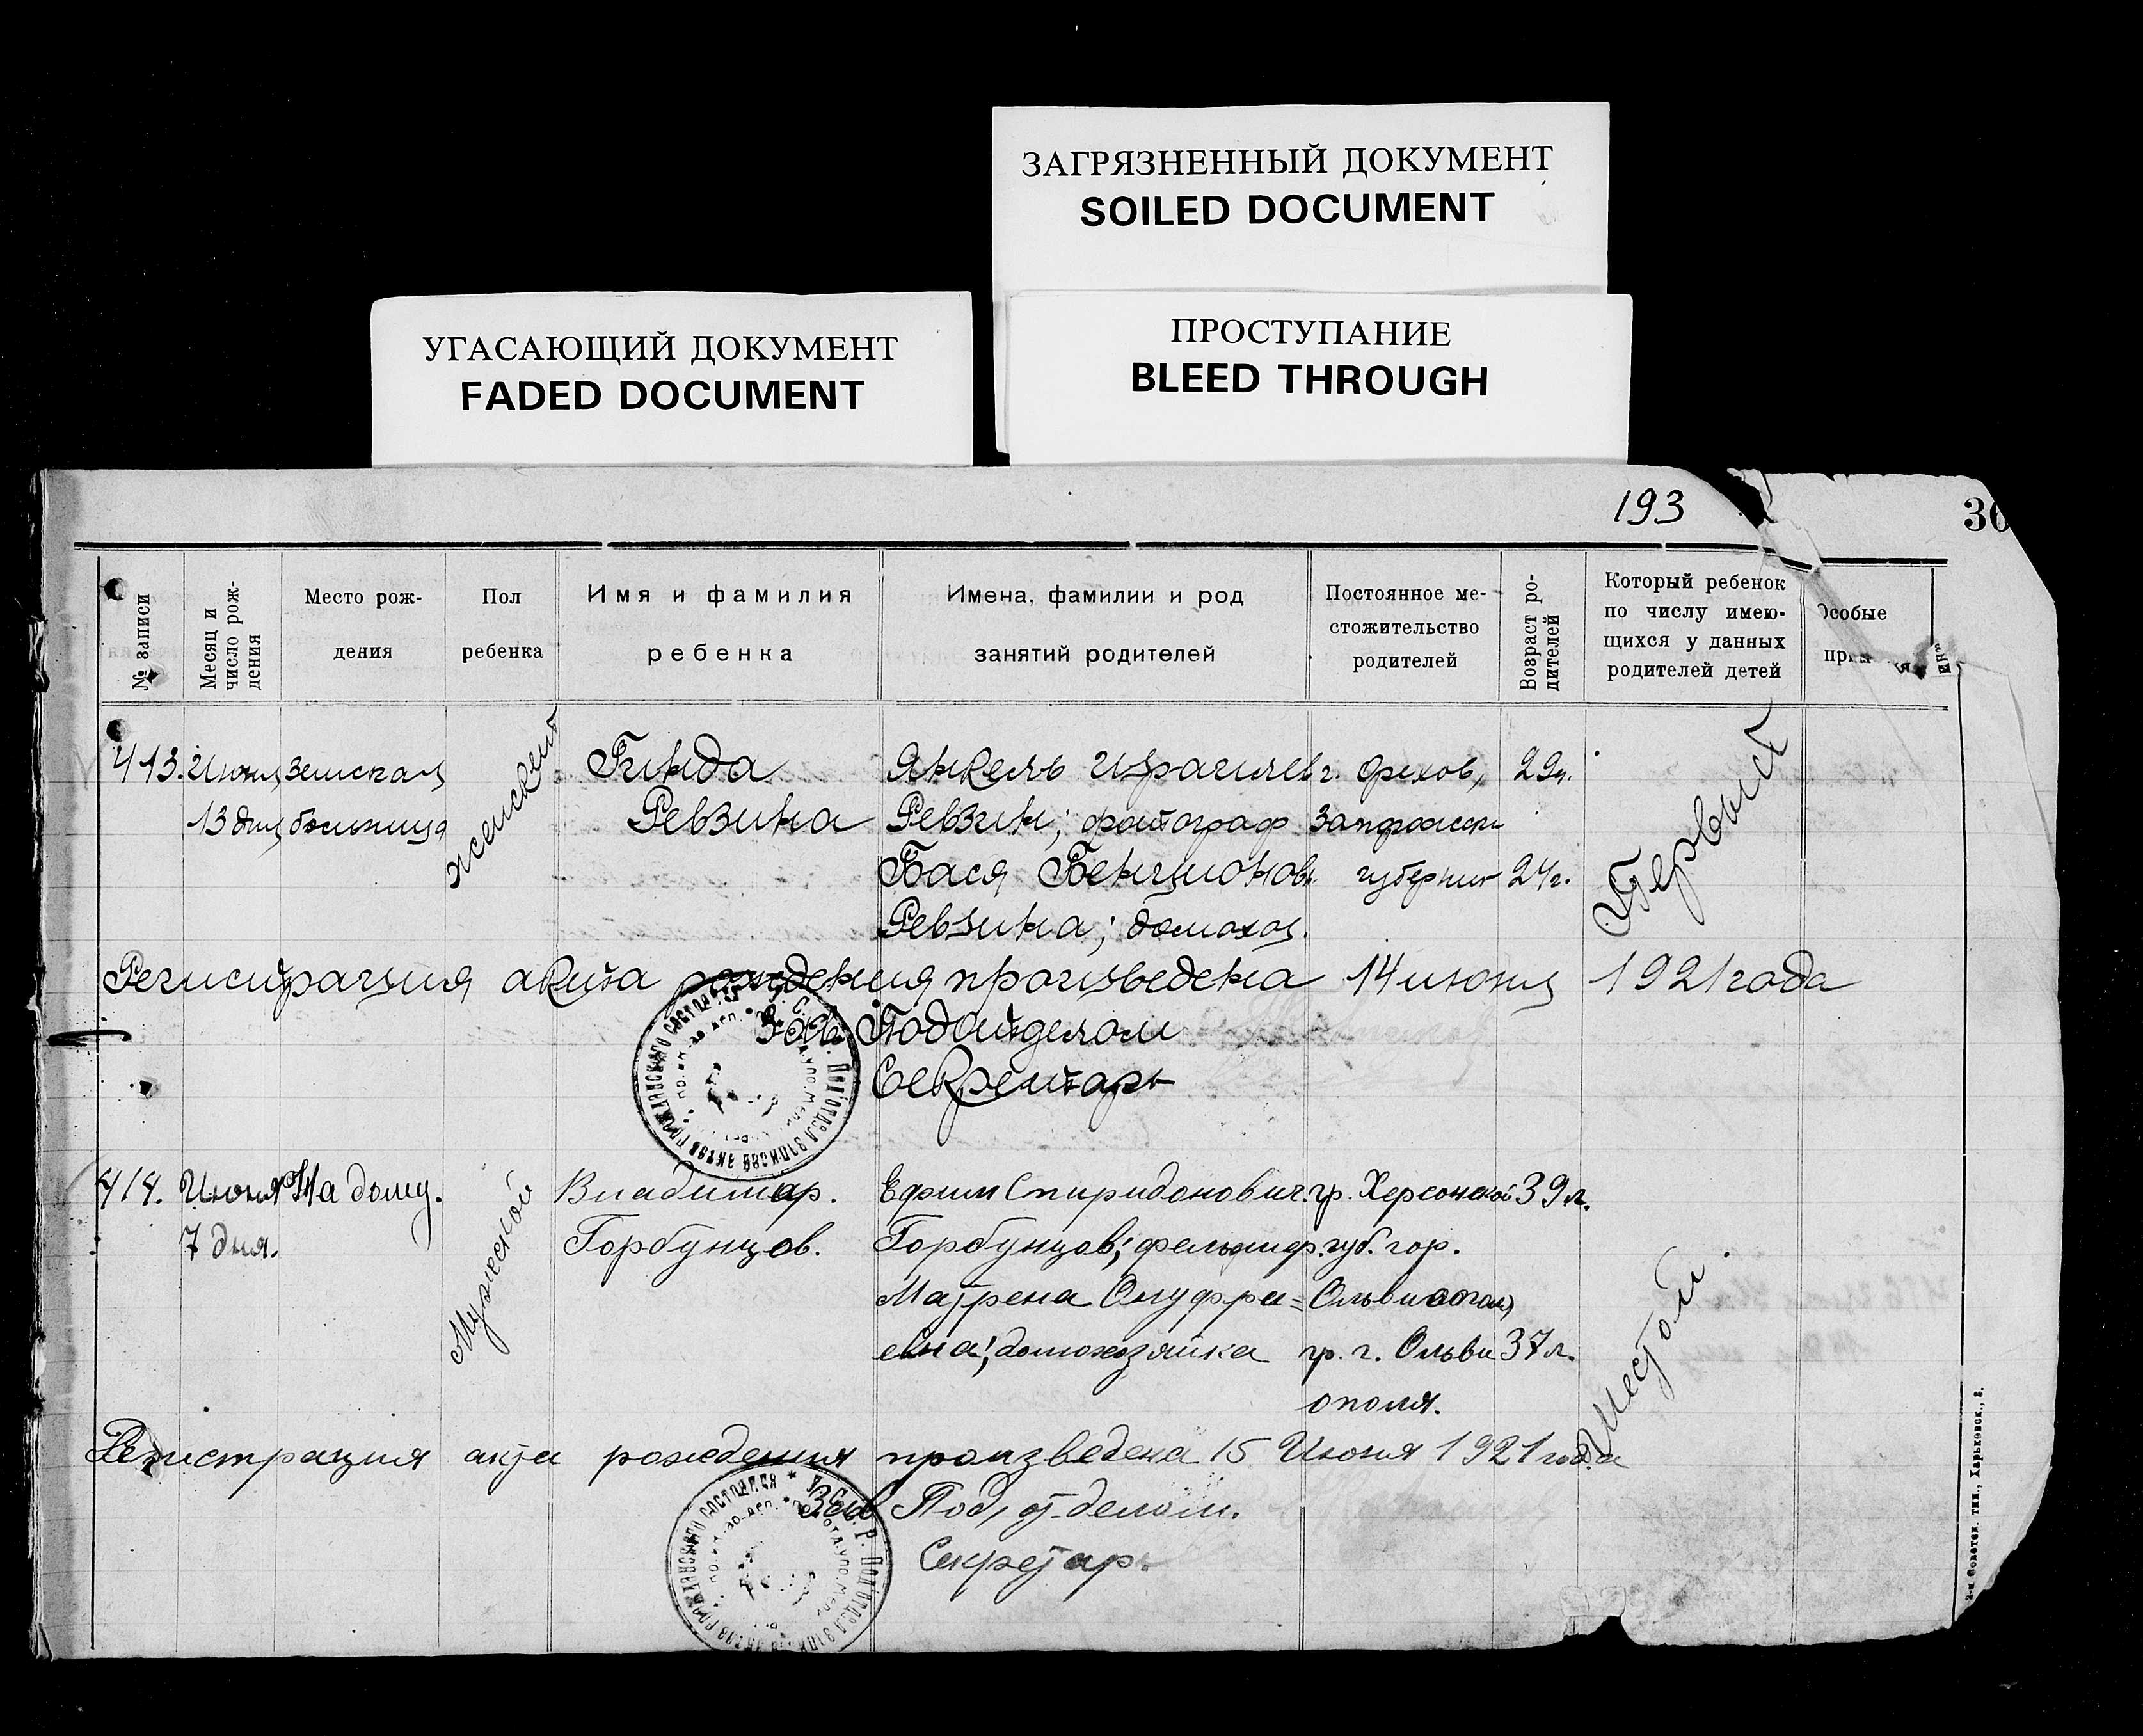 ЗАГРЯЗНЕННЫЙ ДОКУМЕНТ
SOILED DOCUMENT
УГАСАЮЩИЙ ДОКУМЕНТ
FADED DOCUMENT
ПРОСТУПАНИЕ
BLEED THROUGH
193
№ записи
Месяц и
число рож-
дения
Место рож-
дения
Пол
ребенка
Имя и фамилия
ребенка
Имена, фамилии и род
занятий родителей
Постоянное ме-
стожительство
родителей
Возраст ро-
дителей
Который ребенок
по числу имею-
щихся у данных
родителей детей
Особые
413.
Июня
13 дня
Земская
больница
женский
Гинда
Ревзина
Янкель Израилев
Ревзин; фотограф
Бася Бенционов.
Ревзина; домохоз.
г. Орехов,
Запорожск.
губернии
29л.
24г.
Первый
Регистрация акта рождения произведена 14 июня 1921 года
Зав. Подотделом
Секретарь
414.
Июня
7 дня.
На дому.
Мужской
Владимир.
Горбунцов.
Ефим Спиридонович.
Горбунцов; фельдшер.
Матрена Онуфри=
евна; домохозяйка
гр. Херсонской
губ. гор.
Ольвиополя
гр. г. Ольви
ополя.
39л.
37л.
Шестой.
Регистрация акта рождения произведена 15 Июня 1921 года
Зав Под, отделом.
Секретарь
2-я Советск. тип., Харьковск., 8.